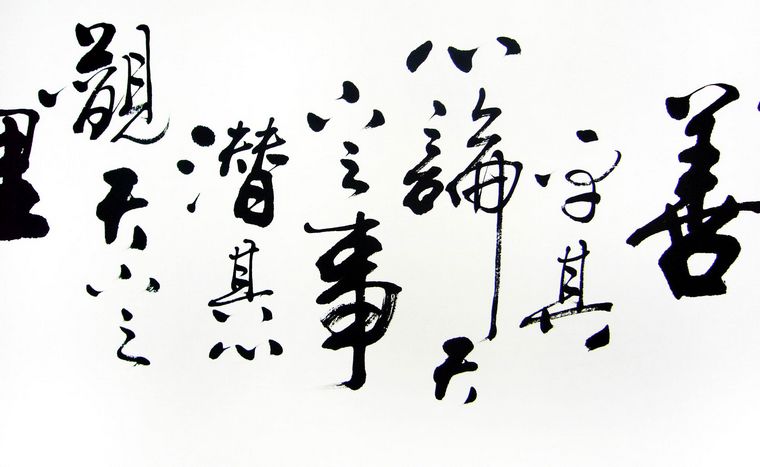 善
平其
心論天
下之事
潛其心
觀天下之